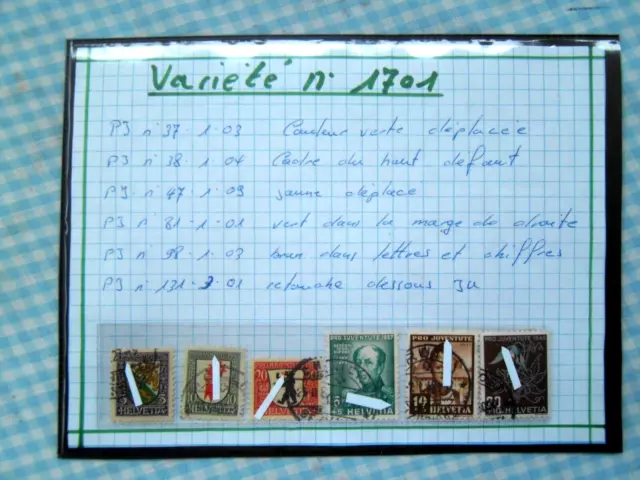 Variété n° 1701
PJ n° 37.1.03 Couleur verte déplacée
PJ n° 38.1.04 Cadre du haut défaut
PJ n° 47.1.09 jaune déplacé
PJ n° 81.1.01 vert dans la marge de droite
PJ n° 98.1.03 brun dans lettres et chiffres
PJ n° 131.3.01 retouche dessous JU
5 5
HELVETIA
10 10
HELVETIA
20
HELVETIA
PRO JUVENTUTE 1937
5
+5 HELVETIA
PRO JUVENTUTE
10
HELVETIA
PRO JUVENTUTE 1948
HELVETIA